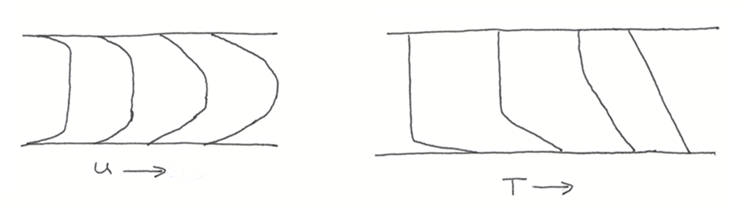 u →
T →